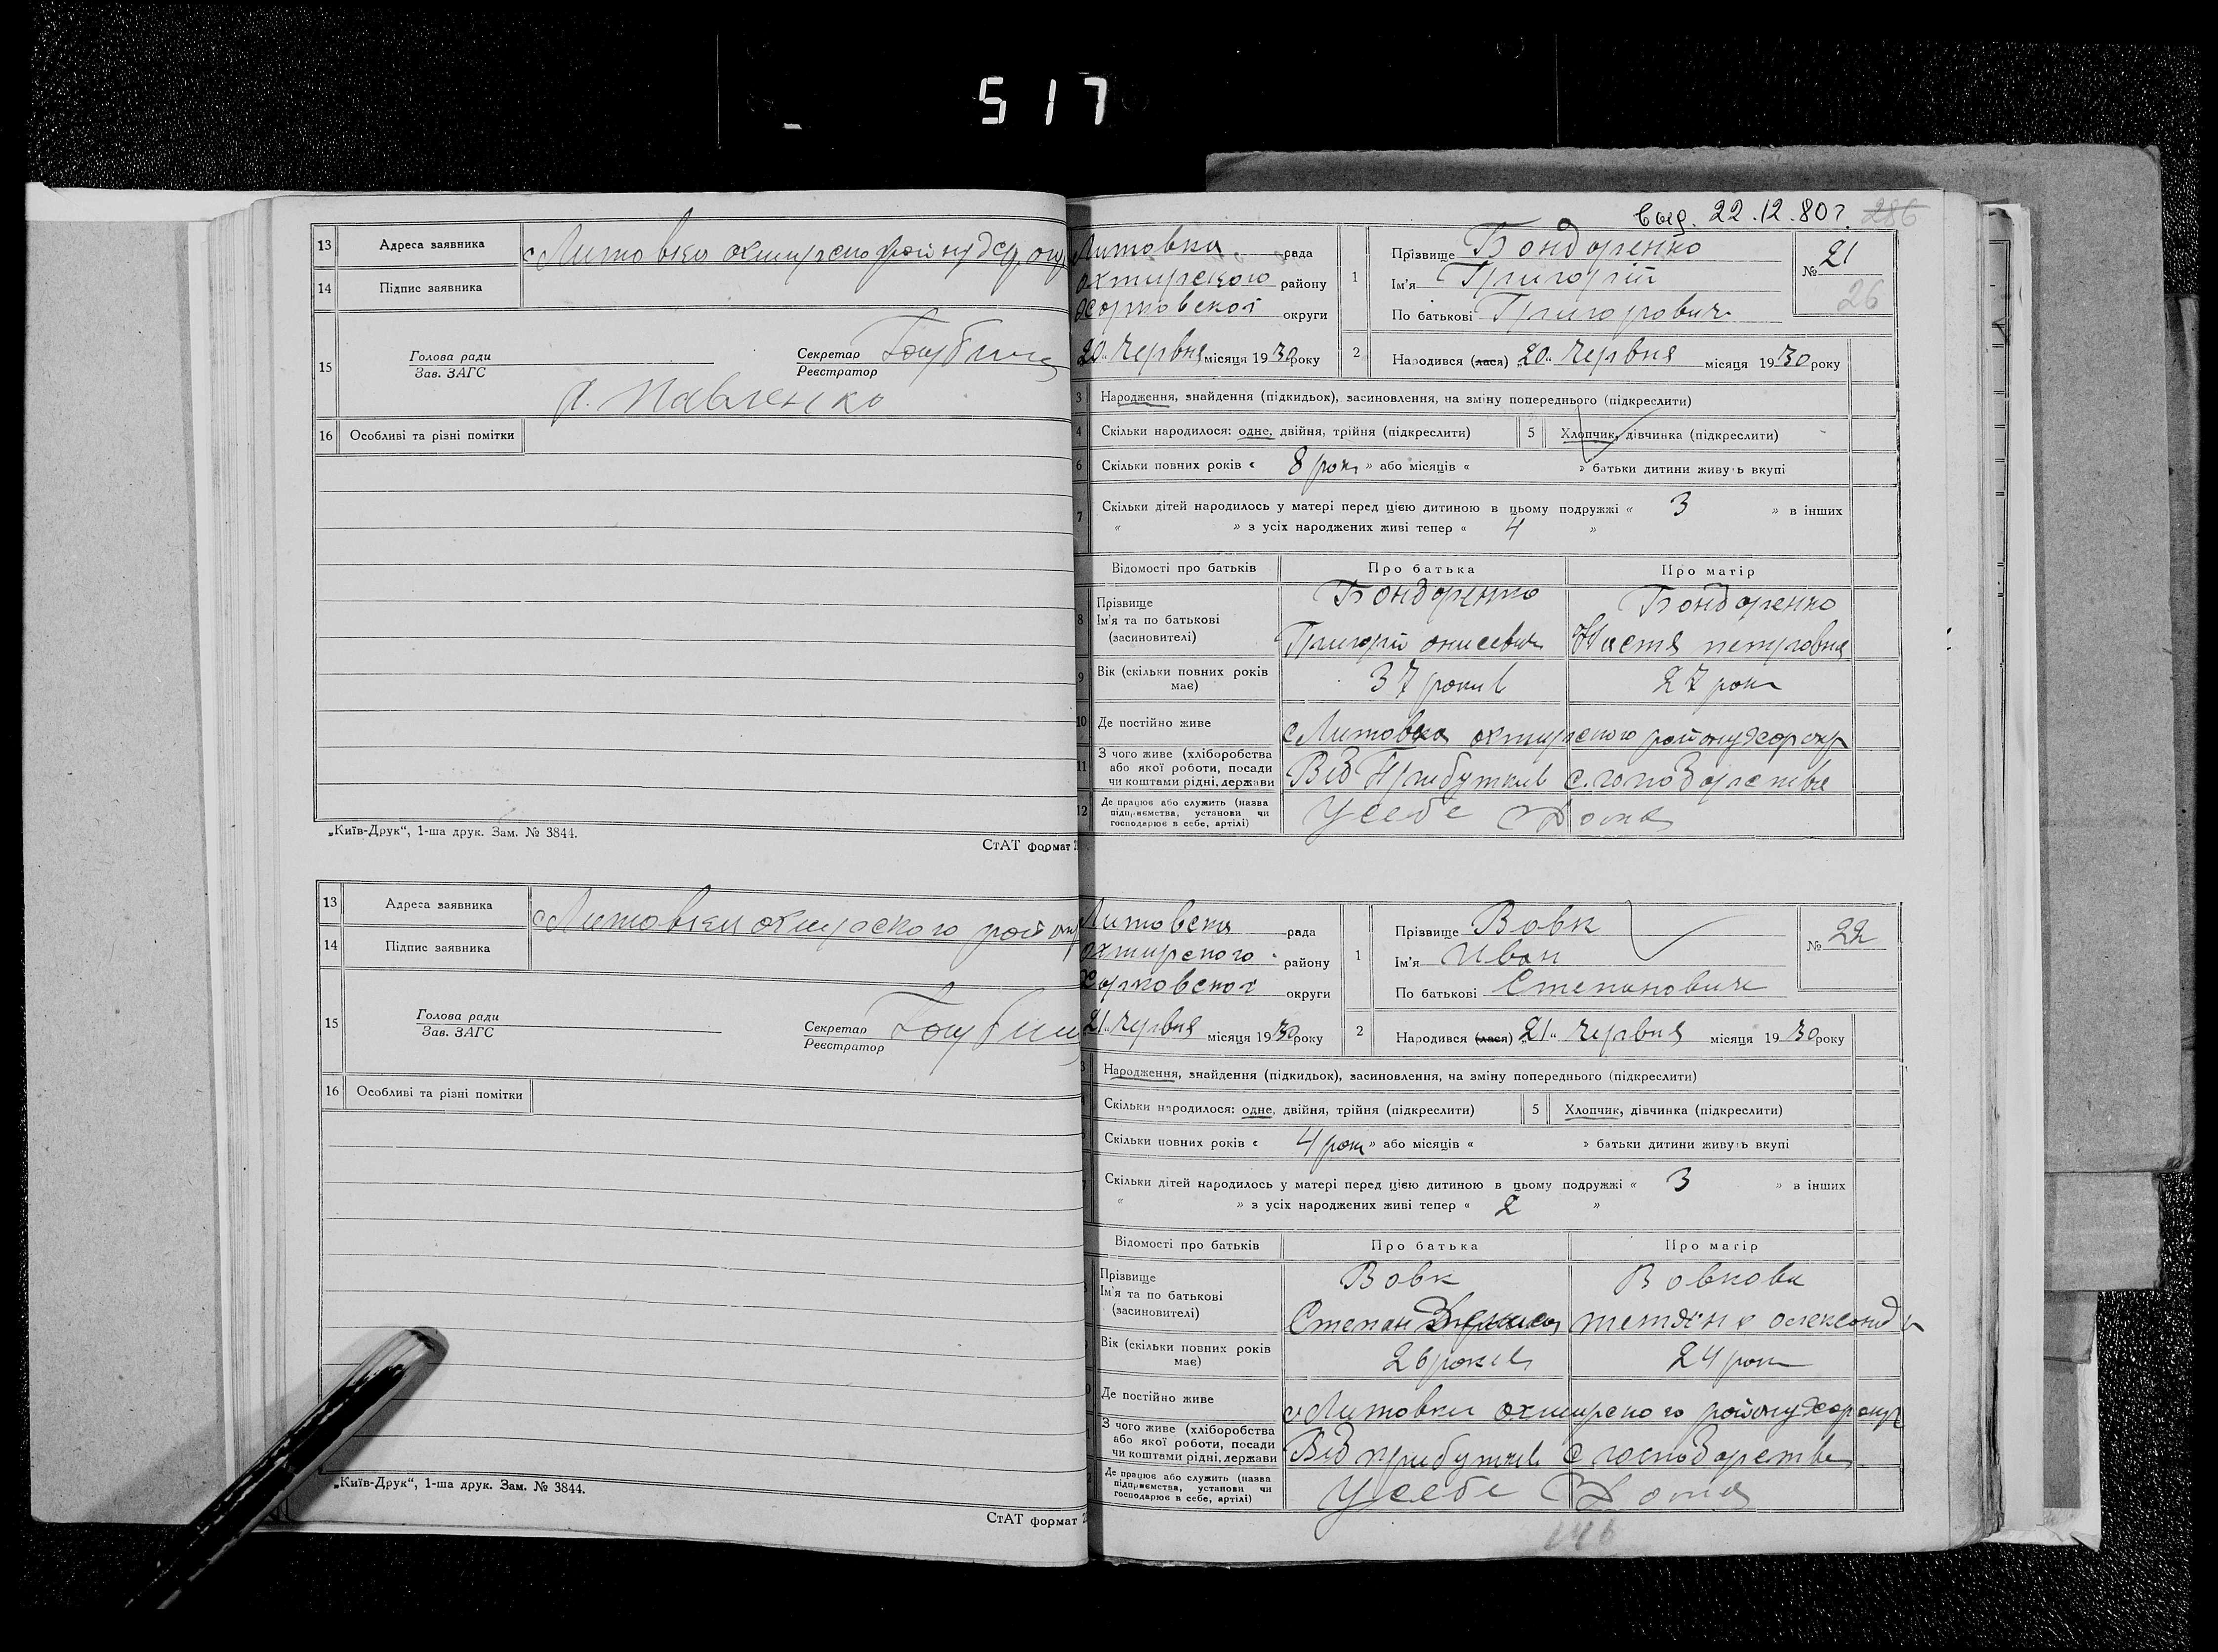 517
13 Адреса заявника с Литовка охтирсько району
14 Підпис заявника
15 Голова ради Зав. ЗАГС Секретар Реєстратор
Павленко
16 Особливі та різні помітки
„Київ-Друк“, 1-ша друк. Зам. № 3844.
СтАТ формат 2
13 Адреса заявника с Литовки охтирского
14 Підпис заявника
15 Голова ради Зав. ЗАГС Секретар Реєстратор
16 Особливі та різні помітки
„Київ-Друк“, 1-ша друк. Зам. № 3844.
СтАТ формат 2
22.12.80г. 286
Литовка рада
Охтирского району
Харковскої округи
20 Червня місяця 1930 року
1 Прізвище Бондаренко
Ім'я Григорій
По батькові Григорович
№ 21
26
2 Народився (лася) „20“ Червня місяця 1930 року
3 Народження, знайдення (підкидьок), засиновлення, на зміну попереднього (підкреслити)
4 Скільки народилося: одне, двійня, трійня (підкреслити) 5 Хлопчик, дівчинка (підкреслити)
6 Скільки повних років « 8 рок » або місяців « » батьки дитини живуть вкупі
7 Скільки дітей народилось у матері перед цією дитиною в цьому подружжі « 3 » в інших
« » з усіх народжених живі тепер « 4 »
Відомості про батьків Про батька Про матір
8 Прізвище Ім'я та по батькові (засиновителі) Бондаренко Бондаренко
Григорій онисевич Настя петровна
9 Вік (скільки повних років має) 37 рокив 27 рок
10 Де постійно живе с Литовка охтирского району Хар окр
11 З чого живе (хліборобства або якої роботи, посади чи коштами рідні, держави Від Прибуткив с. господарства
12 Де працює або служить (назва підприємства, установи чи господарює в себе, артілі) У себе Дома
Литовска рада
охтирского району
Харковскої округи
21 Червня місяця 1930 року
1 Прізвище Вовк
Ім'я Иван
По батькові Степанович
№ 22
2 Народився (лася) „21“ Червня місяця 1930 року
Народження, знайдення (підкидьок), засиновлення, на зміну попереднього (підкреслити)
Скільки народилося: одне, двійня, трійня (підкреслити) 5 Хлопчик, дівчинка (підкреслити)
Скільки повних років « 4 рок » або місяців « » батьки дитини живуть вкупі
Скільки дітей народилось у матері перед цією дитиною в цьому подружжі « 3 » в інших
« » з усіх народжених живі тепер « 2 »
Відомості про батьків Про батька Про матір
Прізвище Ім'я та по батькові (засиновителі) Вовк Вовкова
Степан тетяна олександ
Вік (скільки повних років має) 26 рокив 24 рок
Де постійно живе с Литовки охтирского району Хар окр
З чого живе (хліборобства або якої роботи, посади чи коштами рідні, держави Від прибуткив с господарства
Де працює або служить (назва підприємства, установи чи господарює в себе, артілі) У себе Дома